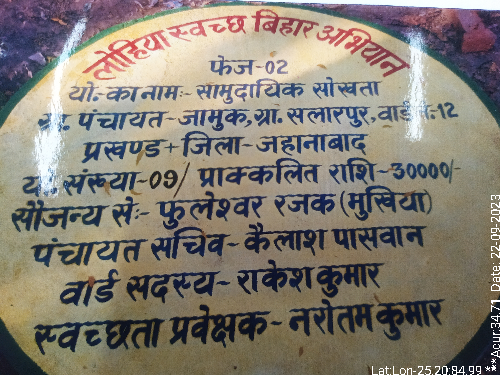 लोहिया स्वच्छ बिहार अभियान
फेज-02
यो. का नामः- सामुदायिक सोख्ता
ग्रा. पंचायत- जामुक, ग्रा. सलारपुर, वार्ड सं:12
प्रखण्ड + जिला- जहानाबाद
यो. संख्या-09/ प्राक्कलित राशि-30000/-
सौजन्य सेः- फुलेश्वर रजक (मुखिया)
पंचायत सचिव- कैलाश पासवान
वार्ड सदस्य- राकेश कुमार
स्वच्छता प्रवेक्षक- नरोतम कुमार
Lat:Lon-25.20:84.99 ***Acur:34.71, Date: 22-09-2023